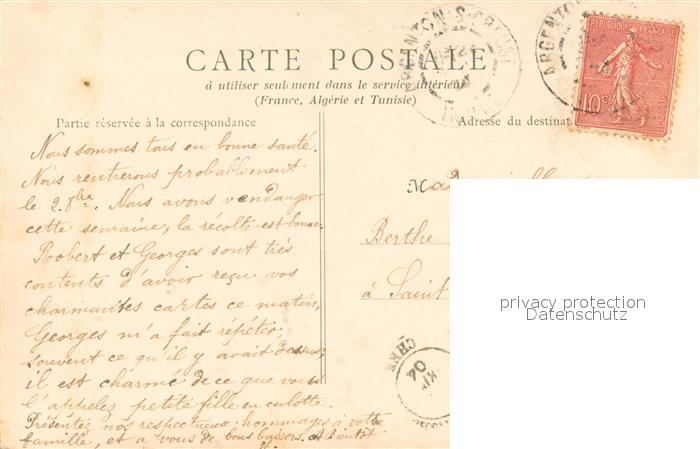 ARGENTON-S-CREUSE
ARGENTON
REPUBLIQUE FRANÇAISE
10c
POSTES
CARTE POSTALE
à utiliser seulement dans le service intérieur
(France, Algérie et Tunisie)
Partie réservée à la correspondance
Adresse du destinat
Nous sommes tous en bonne santé.
Nous rentrerons probablement
le 2. 8bre. Nous avons vendanger
cette semaine, la récolte est bonne.
Robert et Georges sont très
contents d'avoir reçu vos
charmantes cartes ce matin,
Georges m'a fait répéter,
souvent ce qu'il y avait dessus;
il est charmé de ce que vous
l'appelez petite fille en culotte.
Présentez nos respectueux hommages à votre
famille, et a vous de bons baisers. A bientôt
Berthe
à Saint
CHER
04
privacy protection
Datenschutz